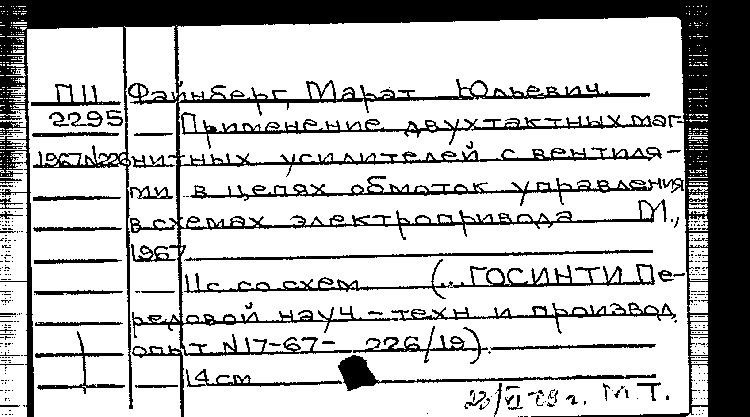 П11 Файнберг, Марат Юльевич.
2295 Применение двухтактных маг-
1967/N226 нитных усилителей с вентиля-
ми в цепях обмоток управления
в схемах электропривода М.,
1967
11с со схем (... ГОСИНТИ Пе-
редовой науч-техн и производ
опыт N17-67- 226/19)
14см
М.Т.